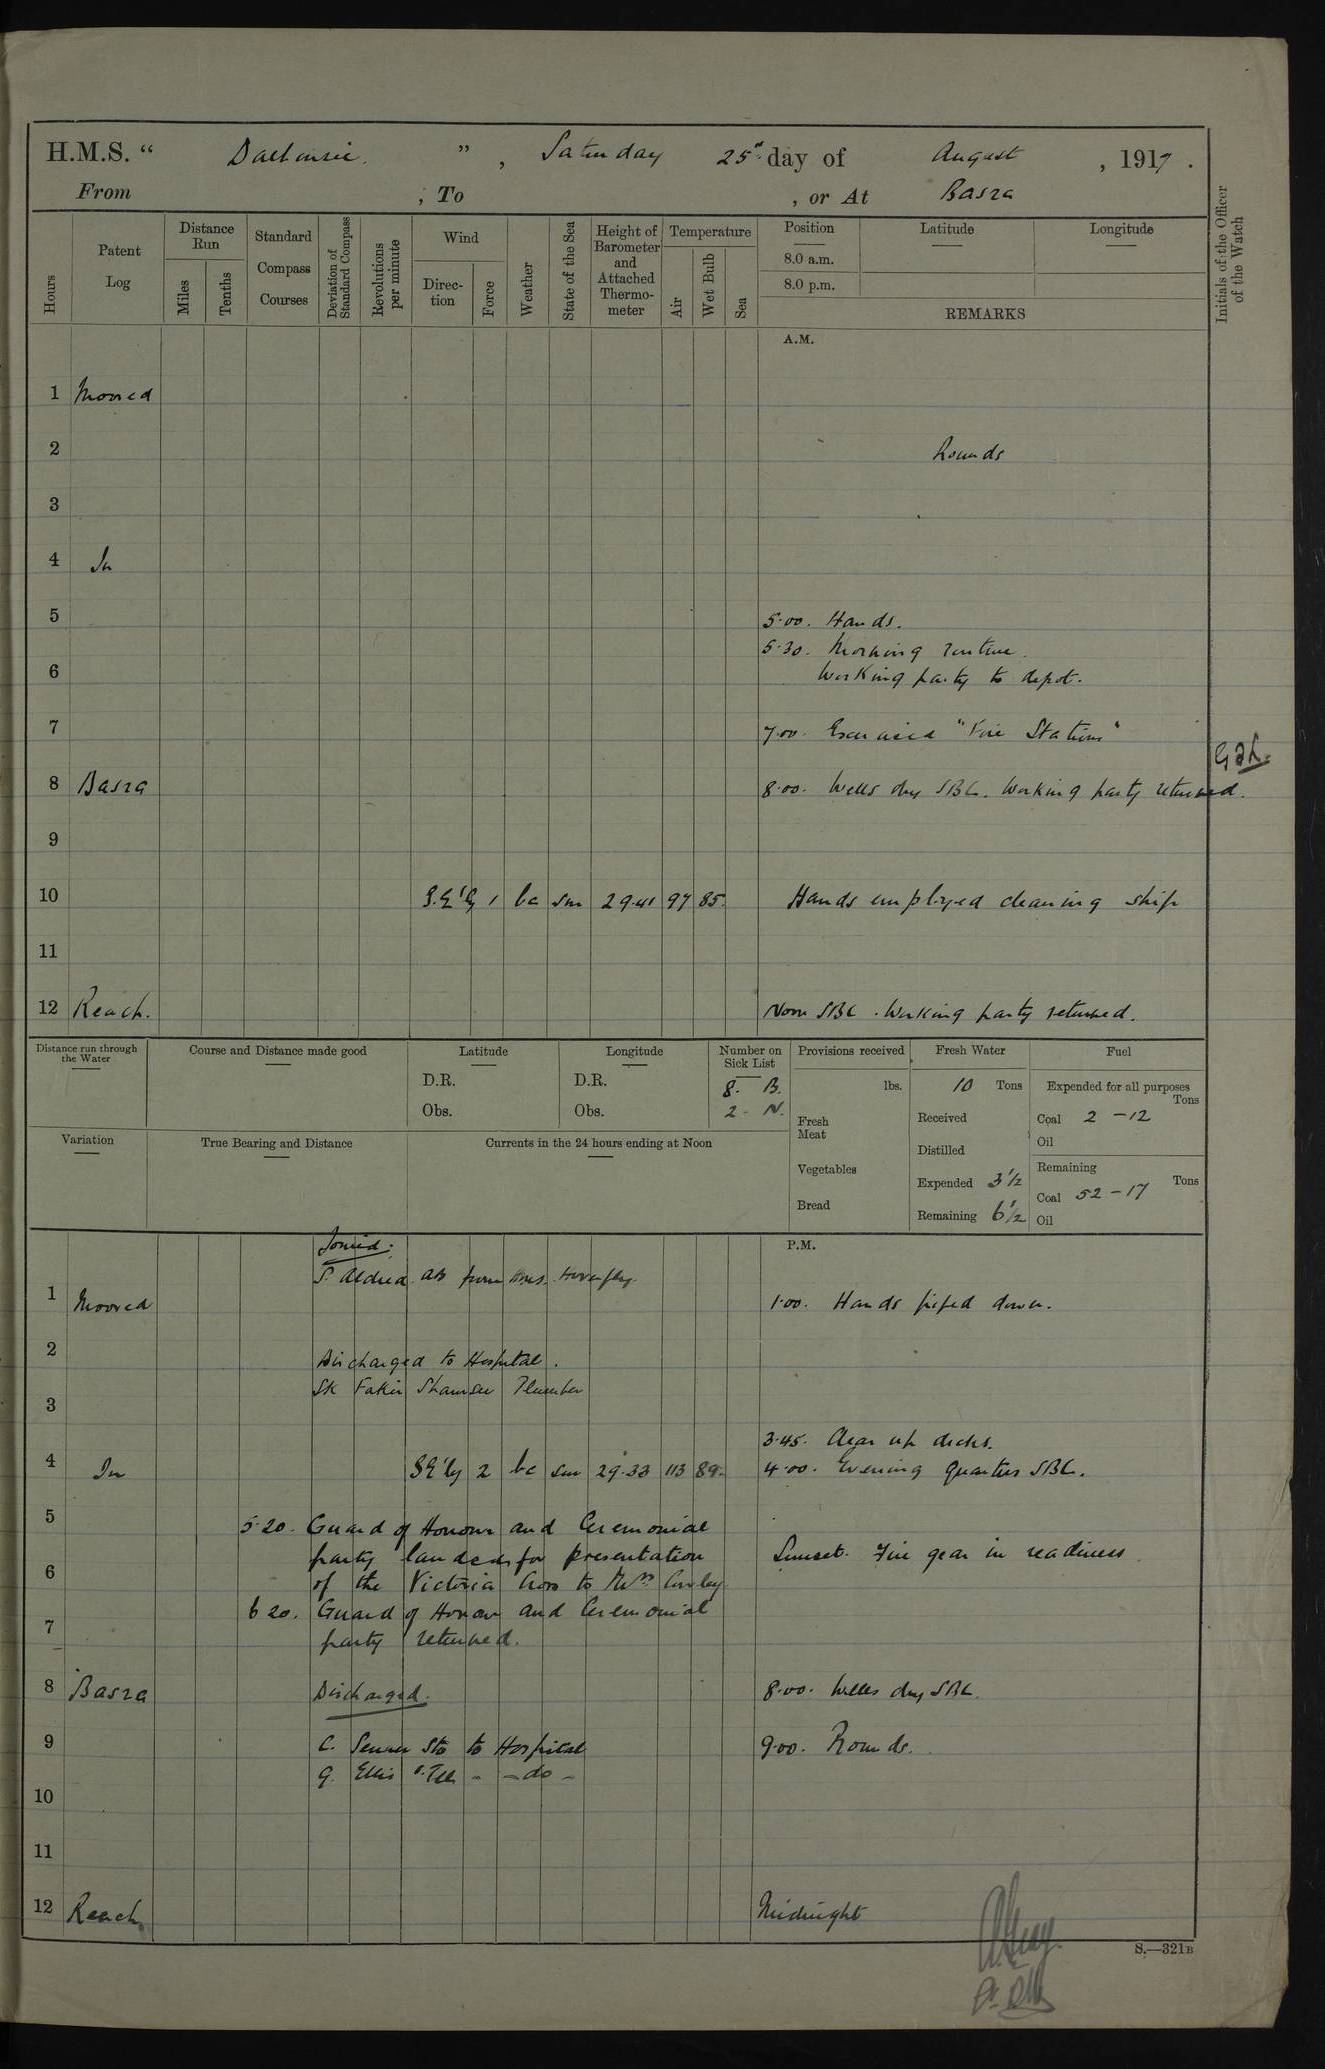 H.M.S. “ Dalhousie ” , Saturday 25th day of August , 1917 .
From ; To , or At Basra
Hours
Patent Log
Distance Run
Miles
Tenths
Standard Compass Courses
Deviation of Standard Compass
Revolutions per minute
Wind
Direction
Force
Weather
State of the Sea
Height of Barometer and Attached Thermometer
Temperature
Air
Wet Bulb
Sea
Position
8.0 a.m.
8.0 p.m.
Latitude
Longitude
REMARKS
Initials of the Officer of the Watch
A.M.
1 Moored
2 Rounds
3
4 In
5 5.00. Hands.
5.30. Morning routine.
6 Working party to depot.
7 7.00. Exercised "Fire Stations"
8 Basra 8.00. Wells dry SBC. Working party returned.
9
10 S.E'ly 1 bc sm 29.41 97 85. Hands employed cleaning ship
11
12 Reach. Noon SBC. Working party returned.
Distance run through the Water
Course and Distance made good
Latitude
D.R.
Obs.
Longitude
D.R.
Obs.
Number on Sick List
8. B.
2 - N.
Provisions received
lbs.
Fresh Meat
Vegetables
Bread
Fresh Water
10 Tons
Received
Distilled
Expended 3 1/2
Remaining 6 1/2
Fuel
Expended for all purposes
Tons
Coal 2 - 12
Oil
Remaining
Tons
Coal 52 - 17
Oil
Variation
True Bearing and Distance
Currents in the 24 hours ending at Noon
P.M.
Joined:
S. Aldred AB from
1 Moored 1.00. Hands piped down.
2 Discharged to Hospital.
Sk Fakir Shamsu Plumber
3
3.45. Clear up decks.
4 In SE'ly 2 bc sm 29.33 113 89. 4.00. Evening quarters SBC.
5 5.20. Guard of Honour and Ceremonial
party landed for presentation Sunset. Fire gear in readiness
6 of the Victoria Cross to Mrs Cowley
6 20. Guard of Honour and Ceremonial
7 party returned.
8 Basra Discharged. 8.00. Wells dry SBC.
9 C. Sto to Hospital 9.00. Rounds.
G. Ellis - - do -
10
11
12 Reach Midnight
S.—321B